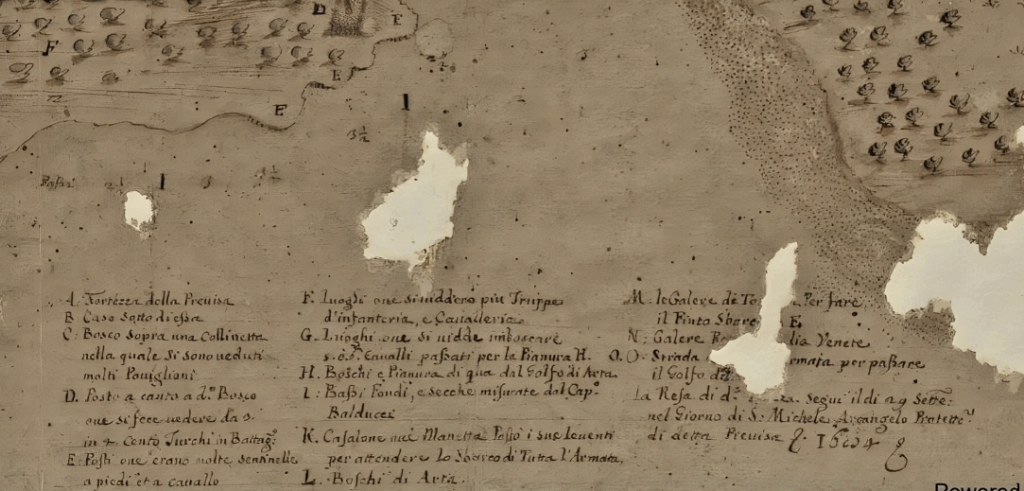 D
F
F
E
E
I
3½
Passi
I
A. Fortezza della Preuisa
B. Case Sotto di essa
C. Bosco Sopra una Collinetta
nella quale Si sono ueduti
molti Pauiglioni
D. Posto a canto a d.º Bosco
oue si fece uedere da
in Cento Turchi in Battag.ª
E. Posti oue erano molte sentinelle
a piedi et a cauallo
F. Luoghi oue si uiddero più Truppe
d'infanteria, e Caualleria
G. Luoghi oue si uidde imboscare
Caualli passati per la Pianura H.
H. Boschi e Pianura di qua dal Golfo di Arta
I. Bassi Fondi, e Secche misurate dal Cap.º
Balducci
K. Casalone oue Manetta Posto i sue Leuenti
per attendere lo Sbarco di Tutta l'Armata
L. Boschi di Arta
M. le Galere de Per fare
il Finto E.
N. Galere Venete
O. O. Strada per passare
il Golfo
La Resa di d.ª Segui il di 29 Sette:
nel Giorno di S. Michele Arcangelo Protett.
di detta Preuisa 1684
Powered